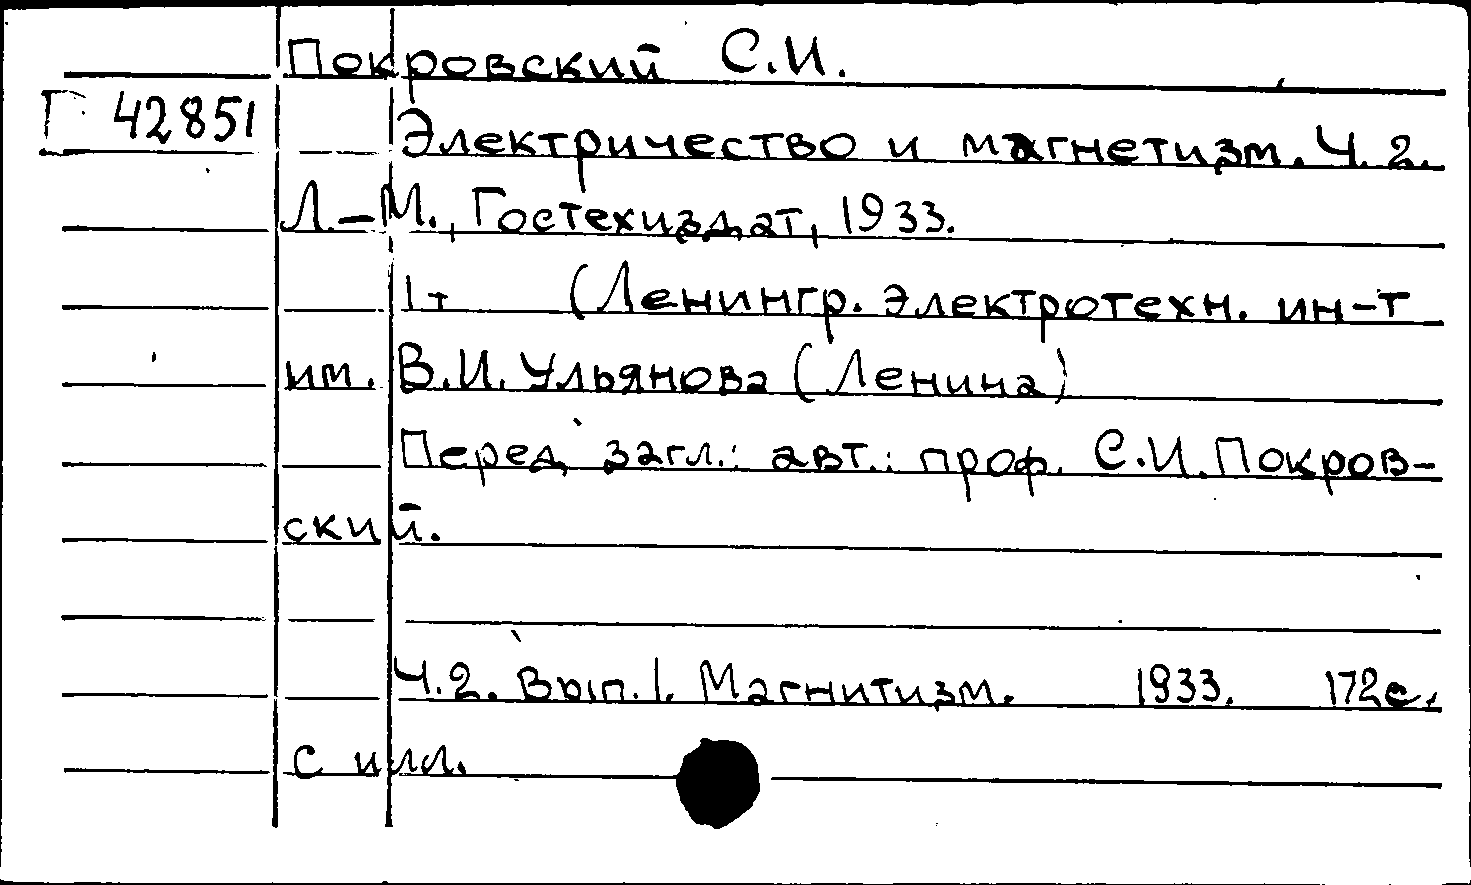 Покровский С.И.
Г 42851
Электричество и магнетизм. Ч. 2.
Л.-М., Гостехиздат, 1933.
1т (Ленингр. электротехн. ин-т
им. В.И. Ульянова (Ленина)
Перед загл.: авт.: проф. С.И. Покров-
ский.
Ч.2. Вып.1. Магнитизм. 1933. 172с.
с илл.